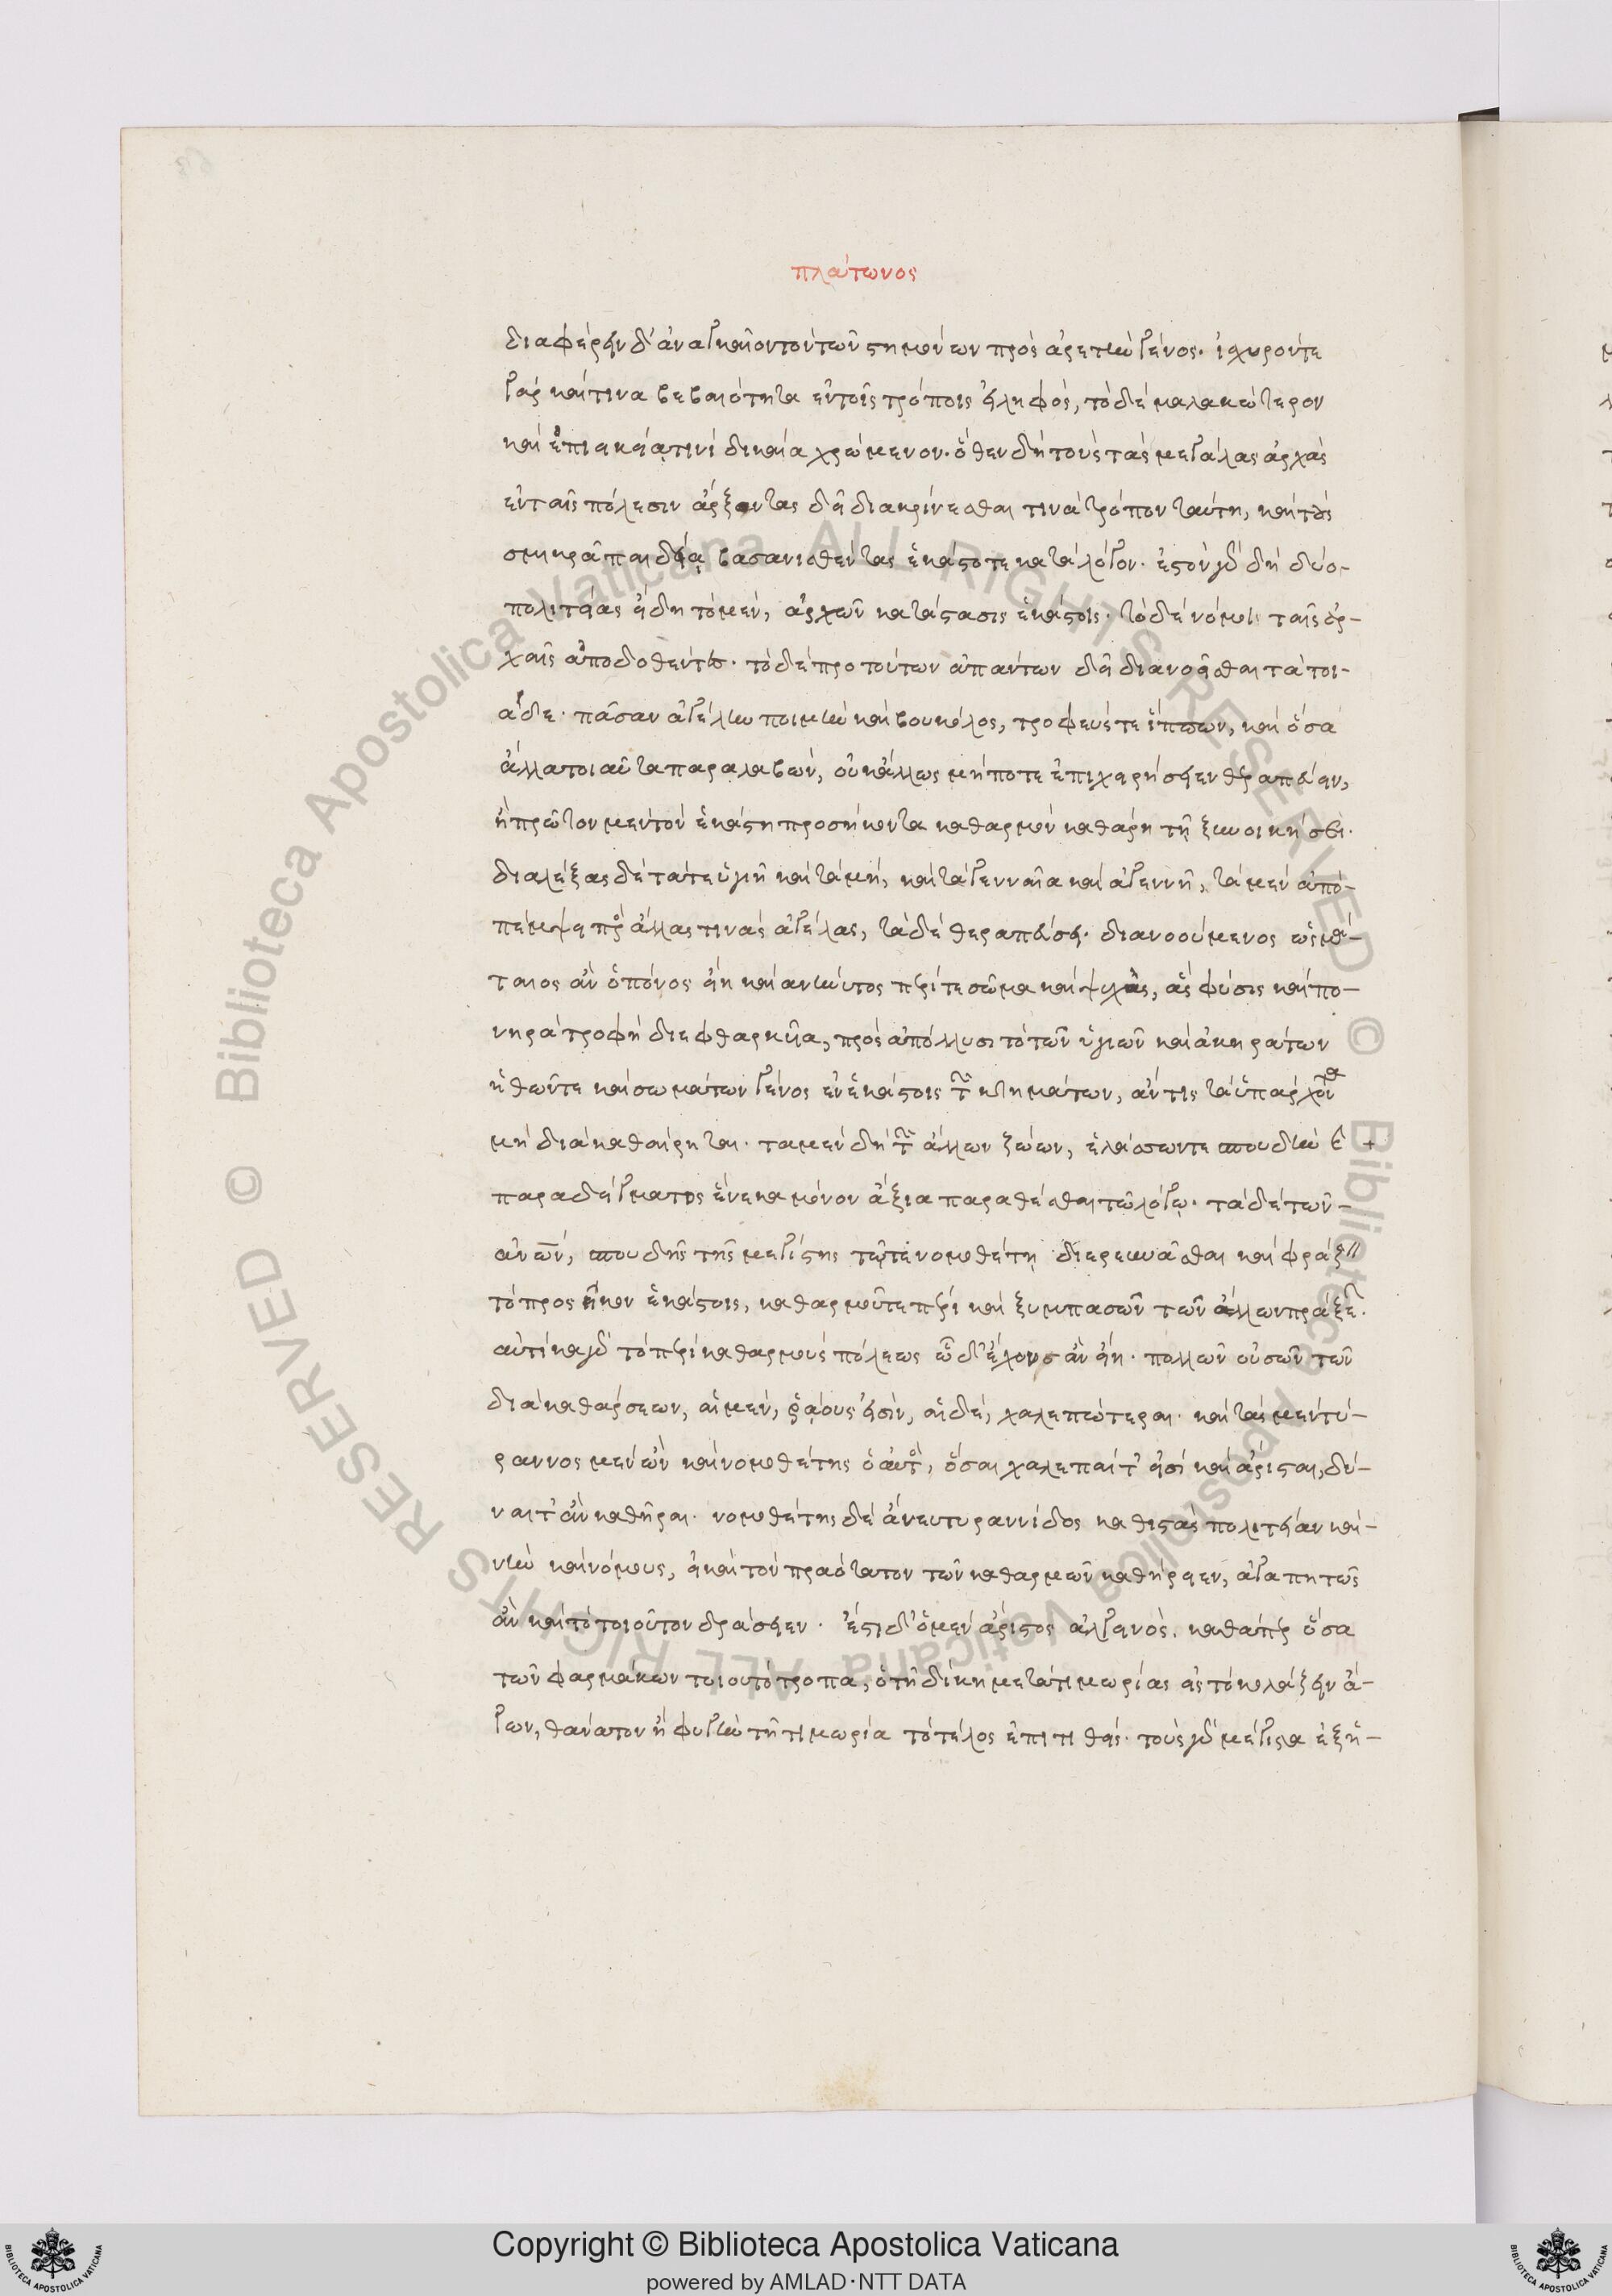 πλάτωνος
διαφέρειν δ' ἀναγκαῖον τὸν τῶν στημόνων πρὸς ἀρετὴν γένος· ἰσχυρόν τε
γὰρ καί τινα βεβαιότητα ἐν τοῖς τρόποις εἰληφός, τὸ δὲ μαλακώτερον
καὶ ἐπιεικείᾳ τινὶ δικαίᾳ χρώμενον· ὅθεν δὴ τοὺς τὰς μεγάλας ἀρχὰς
ἐν ταῖς πόλεσιν ἄρξοντας δεῖ διακρίνεσθαι τινὰ τρόπον ταύτῃ, καὶ τοὺς
σμικρᾷ παιδείᾳ βασανισθέντας ἑκάστοτε κατὰ λόγον· ἐστὸν γὰρ δὴ δύο
πολιτείας εἴδη τὸ μὲν, ἀρχῶν κατάστασις ἑκάστοις· τὸ δὲ νόμοι ταῖς ἀρ-
χαῖς ἀποδοθέντες· τὸ δὲ πρὸ τούτων ἁπάντων δεῖ διανοεῖσθαι τὰ τοι-
άδε· πᾶσαν ἀγέλην ποιμὴν καὶ βουκόλος, τροφεύς τε ἵππων, καὶ ὅσα
ἄλλα τοιαῦτα παραλαβών, οὐκ ἄλλως μήποτε ἐπιχειρήσειεν θεραπεύειν,
ἢ πρῶτον μὲν τὸν ἑκάστῃ προσήκοντα καθαρμὸν καθάρῃ τῇ ξυνοικήσει·
διαλέξας δὲ τά τε ὑγιῆ καὶ τὰ μή, καὶ τὰ γενναῖα καὶ ἀγεννῆ, τὰ μὲν ἀπο-
πέμψει πρὸς ἄλλας τινὰς ἀγέλας, τὰ δὲ θεραπεύσει· διανοούμενος ὡς μά-
ταιος ἂν ὁ πόνος εἴη καὶ ἀνήνυτος περί τε σῶμα καὶ ψυχὰς, ἃς φύσις καὶ πο-
νηρὰ τροφὴ διεφθαρκυῖα, προσαπόλλυσι τὸ τῶν ὑγιῶν καὶ ἀκηράτων
ἠθῶν τε καὶ σωμάτων γένος ἐν ἑκάστοις τῶν κτημάτων, ἄν τις τὰ ὑπάρχοντα
μὴ διακαθαίρηται· τὰ μὲν δὴ τῶν ἄλλων ζώων, ἐλάσσων τε σπουδὴ καὶ +
παραδείγματος ἕνεκα μόνον ἄξια παραθέσθαι τῷ λόγῳ· τὰ δὲ τῶν
ἀνων, σπουδῆς τῆς μεγίστης τῷ τε νομοθέτῃ διερευνᾶσθαι καὶ φράζειν
τὸ προσῆκον ἑκάστοις, καθαρμοῦ τε πέρι καὶ ξυμπασῶν τῶν ἄλλων πράξεων·
αὐτίκα γὰρ τὸ περὶ καθαρμοὺς πόλεως ὧδ' ἔχον ἂν εἴη· πολλῶν οὐσῶν τῶν
διακαθάρσεων, αἱ μὲν, ῥᾴους εἰσίν, αἱ δέ, χαλεπώτεραι· καὶ τὰς μὲν τύ-
ραννος μὲν ὢν καὶ νομοθέτης ὁ αὐτός, ὅσαι χαλεπαί τ' εἰσὶ καὶ ἄρισται, δύ-
ναιτ' ἂν καθῆραι· νομοθέτης δὲ ἄνευ τυραννίδος καθιστὰς πολιτείαν και-
νὴν καὶ νόμους, εἰ καὶ τὸν πραότατον τῶν καθαρμῶν καθήρειεν, ἀγαπητῶς
ἂν καὶ τὸ τοιοῦτον δράσειεν· ἔστι δ' ὁ μὲν ἄριστος ἀλγεινός, καθάπερ ὅσα
τῶν φαρμάκων τοιουτότροπα, ὁ τῇ δίκῃ μετὰ τιμωρίας εἰς τὸ κολάζειν ἄ-
γων, θάνατον ἢ φυγὴν τῇ τιμωρίᾳ τὸ τέλος ἐπιτιθείς· τοὺς γὰρ μέγιστα ἐξη-